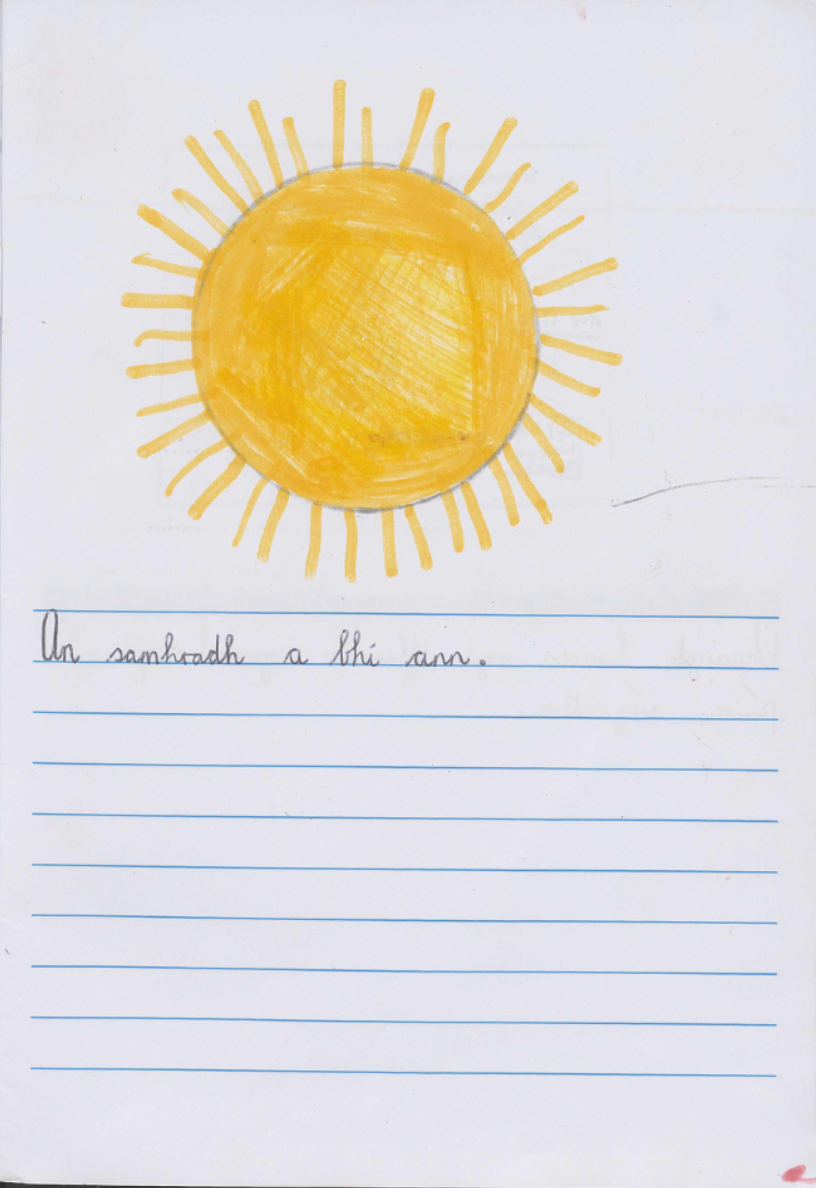 An samhradh a bhí ann.